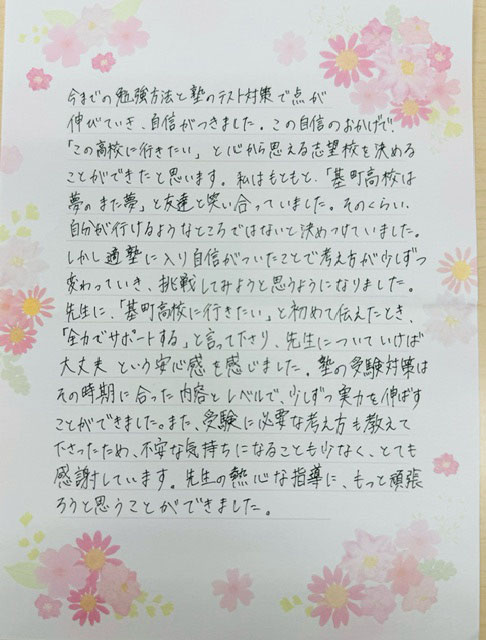 今までの勉強方法と塾のテスト対策で点が
伸びていき、自信がつきました。この自信のおかげで、
「この高校に行きたい」と心から思える志望校を決める
ことができたと思います。私はもともと、「基町高校は
夢のまた夢」と友達と笑い合っていました。そのくらい、
自分が行けるようなところではないと決めつけていました。
しかし適塾に入り自信がついたことで考え方が少しずつ
変わっていき、挑戦してみようと思うようになりました。
先生に、「基町高校に行きたい」と初めて伝えたとき、
「全力でサポートする」と言って下さり、先生についていけば
大丈夫という安心感を感じました。塾の受験対策は
その時期に合った内容とレベルで、少しずつ実力を伸ばす
ことができました。また、受験に必要な考え方も教えて
下さったため、不安な気持ちになることも少なく、とても
感謝しています。先生の熱心な指導に、もっと頑張
ろうと思うことができました。